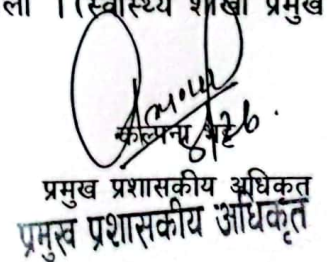 ला । (स्वास्थ्य शाखा प्रमुख
कल्पना भट्ट
प्रमुख प्रशासकीय अधिकृत
प्रमुख प्रशासकीय अधिकृत